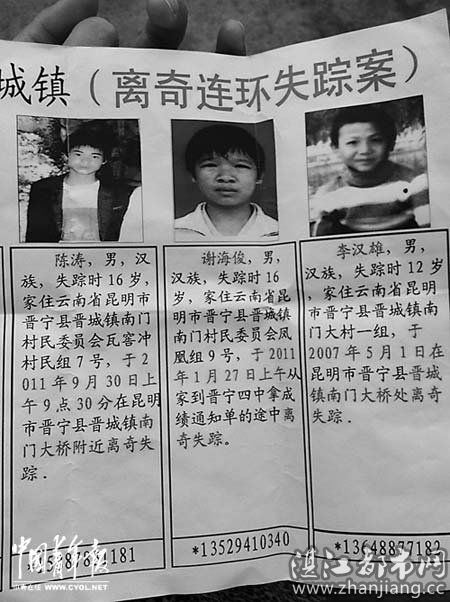 城镇（离奇连环失踪案）
陈涛，男，汉
族，失踪时 16 岁，
家住云南省昆明市
晋宁县晋城镇南门
村民委员会瓦窑冲
村民组 7 号，于 2
011 年 9 月 30 日上
午 9 点 30 分在昆明
市晋宁县晋城镇南
门大桥附近离奇失
踪．
谢海俊，男，
汉族，失踪时16
岁，家住云南省昆
明市晋宁县晋城镇
南门村民委员会凤
凰组 9 号，于 2011
年 1 月 27 日上午从
家到晋宁四中拿成
绩通知单的途中离
奇失踪。
*13529410340
李汉雄，男，
汉族，失踪时 12 岁
，家住云南省昆明
市晋宁县晋城镇南
门大村一组，于
2007 年 5 月 1 日在
昆明市晋宁县晋城
镇南门大桥处离奇
失踪．
*13648877182
中国青年报
中青在线 WWW.CYOL.NET
湛江都市网
www.zhanjiang.cc